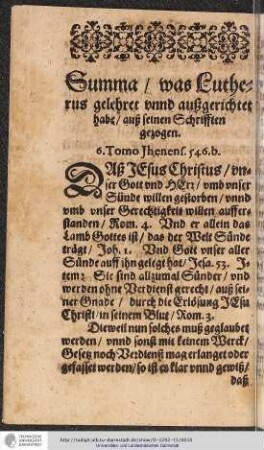 Summa / was Luthe-
rus gelehret vnnd außgerichtet
habe / auß seinen Schrifften
gezogen.
6. Tomo Jhenens. 546. b.
DAß JEsus Christus / vn-
ser Gott vnd HErꝛ / vmb vnser
Sünde willen gestorben / vnnd
vmb vnser Gerechtigkeit willen auffer-
standen / Rom. 4. Vnd er allein das
Lamb Gottes ist / das der Welt Sünde
trägt / Joh. 1. Vnd Gott vnser aller
Sünde auff jhn gelegt hat / Jesa. 53. J-
tem: Sie sind allzumal Sünder / vnd
werden ohne Verdienst gerecht / auß sei-
ner Gnade / durch die Erlösung JEsu
Christi / in seinem Blut / Rom. 3.
Dieweil nun solches muß geglaubet
werden / vnnd sonst mit keinem Werck /
Gesetz noch Verdienst mag erlanget oder
gefasset werden / so ist es klar vnnd gewiß /
daß
Universitäts- und Landesbibliothek Darmstadt